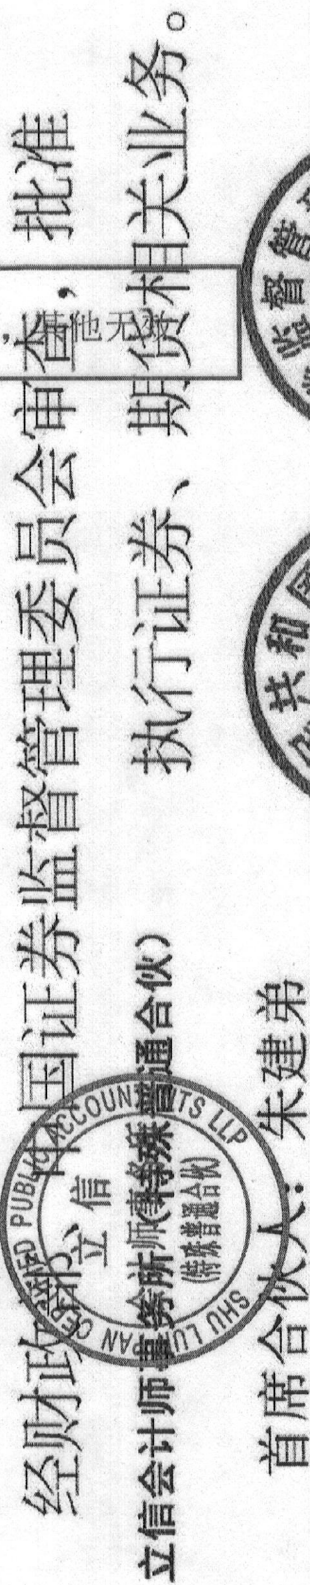 经财政部、中国证券监督管理委员会审查， 批准
立信会计师事务所(特殊普通合伙) 执行证券、 期货相关业务。
首席合伙人：朱建弟
，其他无效
SHU LUN PAN CERTIFIED PUBLIC ACCOUNTANTS LLP
立信
会计师事务所
(特殊普通合伙)
监督管
共和国